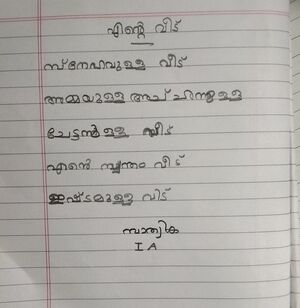 എന്റെ വീട്
സ്നേഹവുള്ള വീട്
അമ്മയുള്ള അച്ഛനുള്ള
ചേട്ടനുള്ള വീട്
എന്റെ സ്വന്തം വീട്
ഇഷ്ടമുള്ള വിട്
സാത്വിക
I A